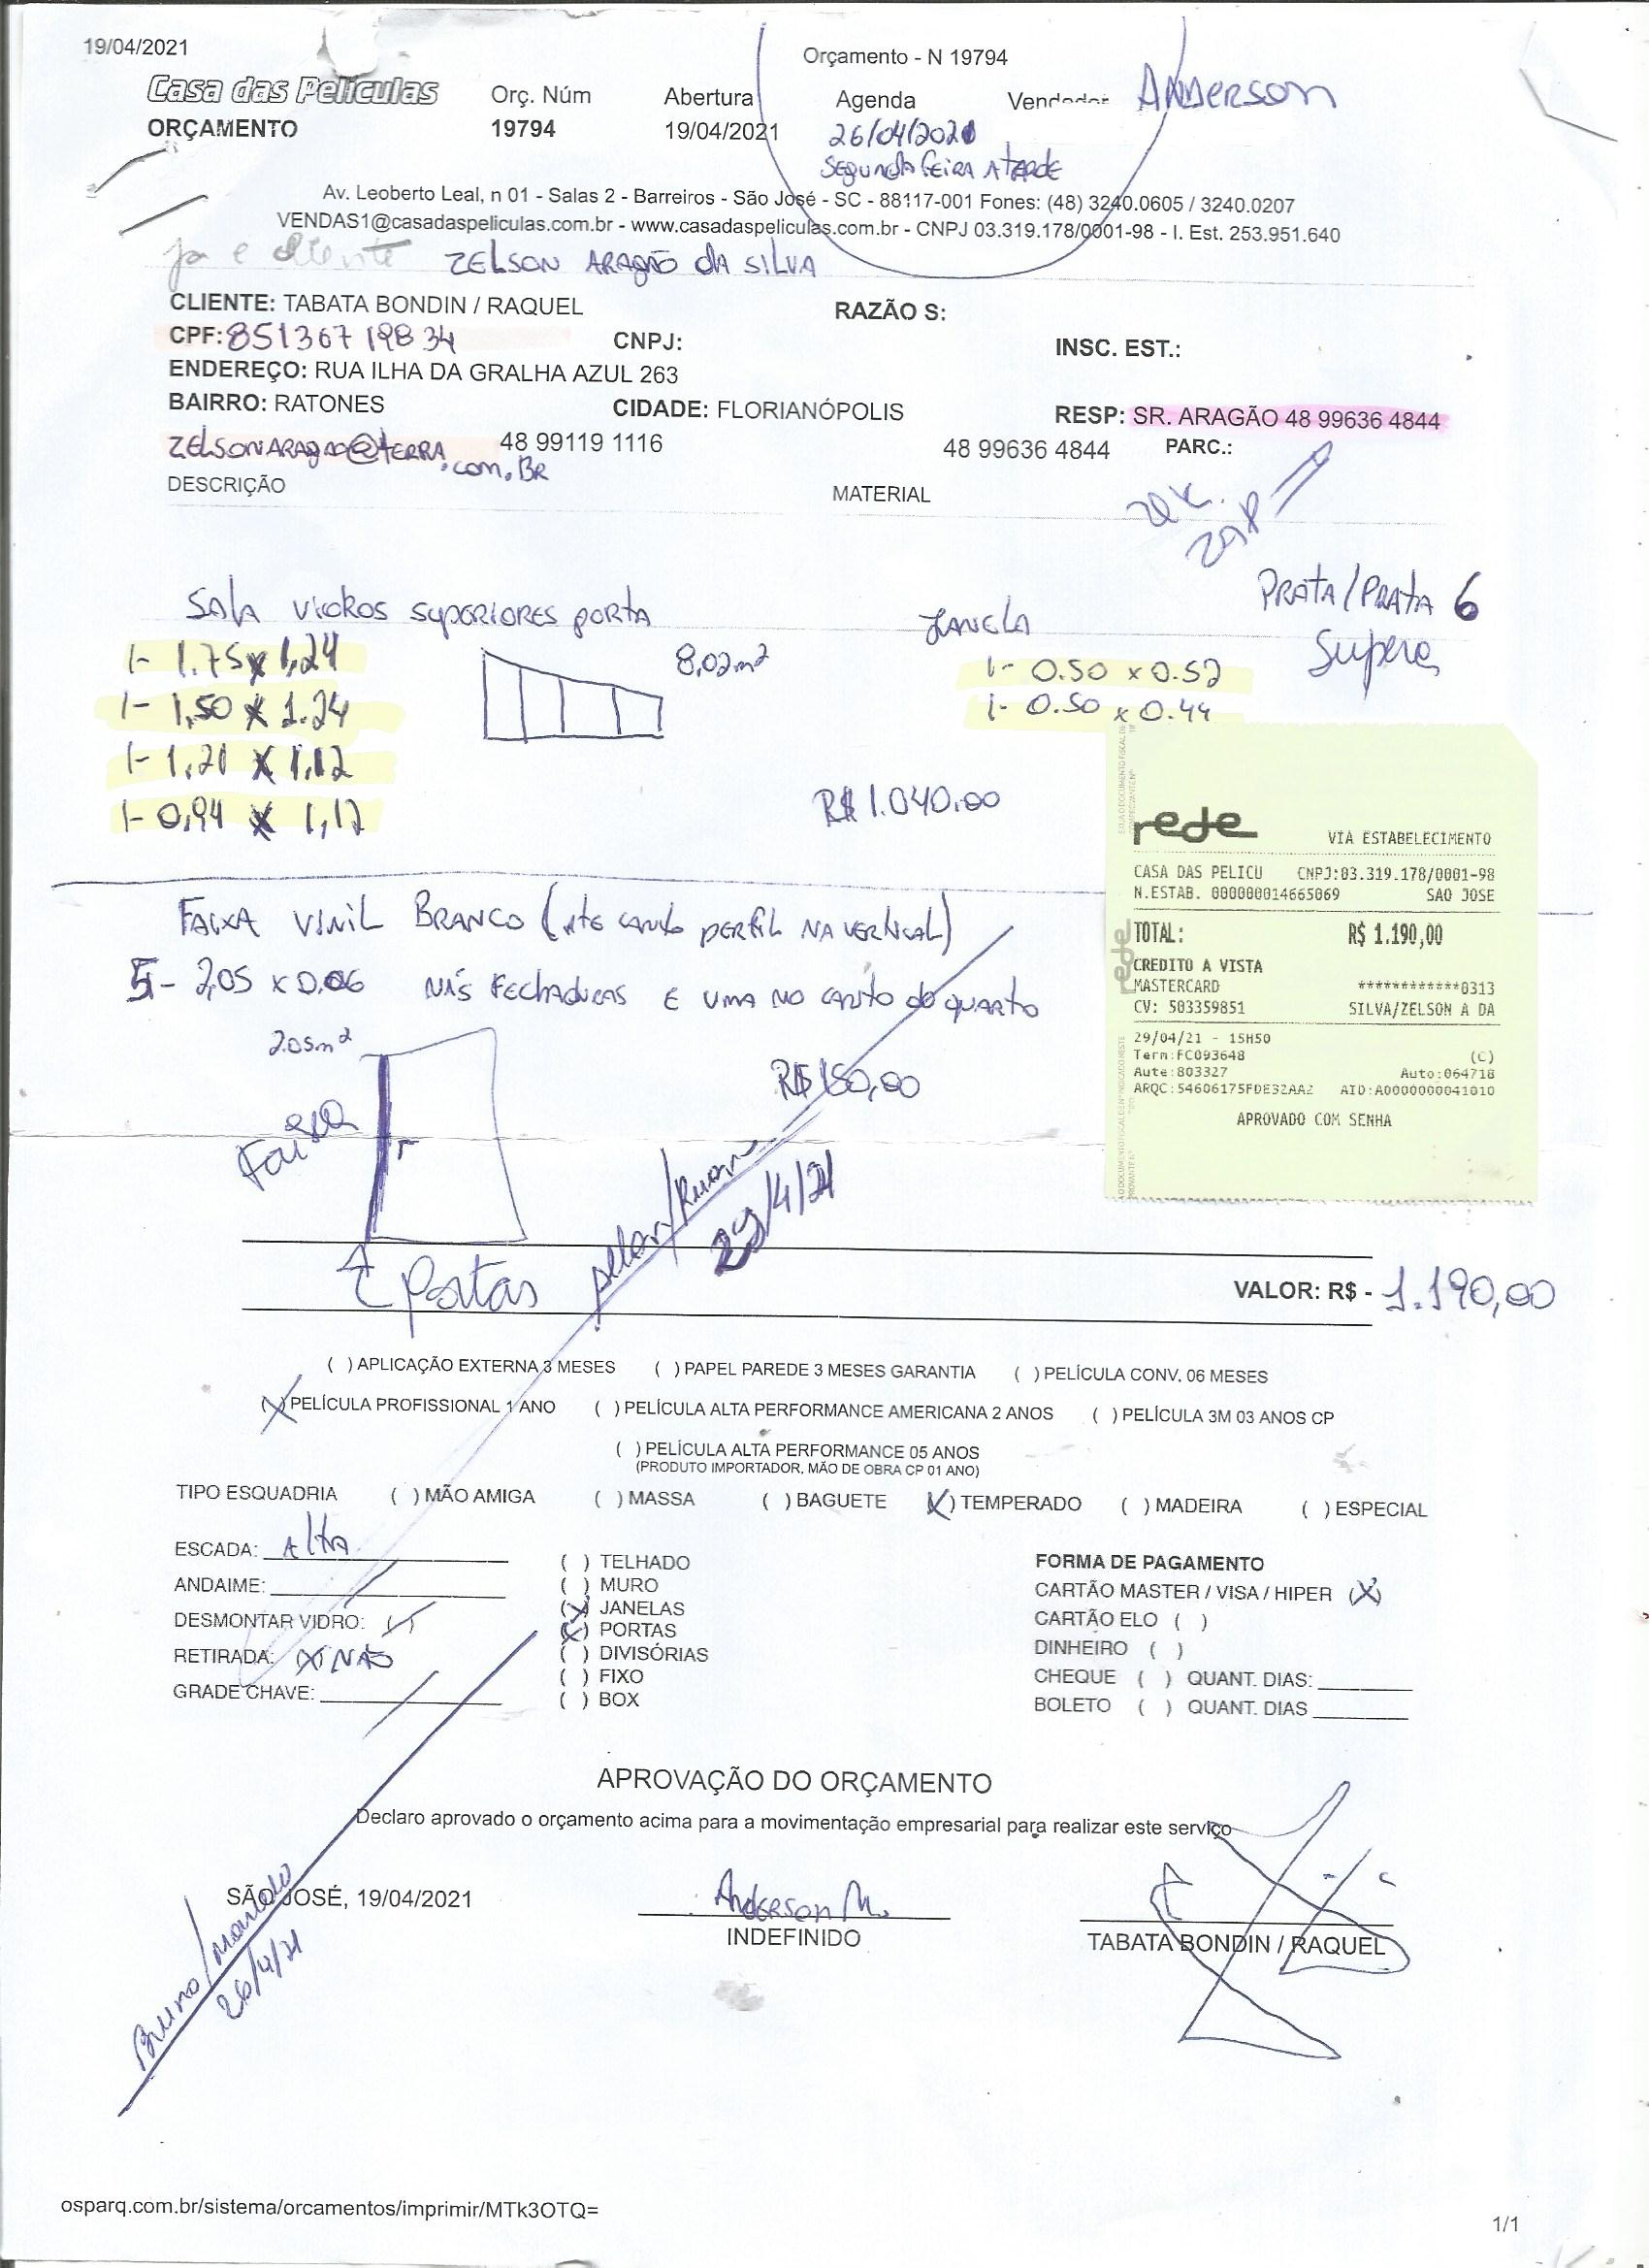 19/04/2021
Orçamento - N 19794
Casa das Películas
Orç. Núm
Abertura
Agenda
Vendedor
Anderson
ORÇAMENTO
19794
19/04/2021
26/04/2021
Segunda feira A tarde
Av. Leoberto Leal, n 01 - Salas 2 - Barreiros - São José - SC - 88117-001 Fones: (48) 3240.0605 / 3240.0207
VENDAS1@casadaspeliculas.com.br - www.casadaspeliculas.com.br - CNPJ 03.319.178/0001-98 - I. Est. 253.951.640
ja e cliente ZELSON ARAGÃO DA SILVA
CLIENTE: TABATA BONDIN / RAQUEL
RAZÃO S:
CPF: 851367 198 34
CNPJ:
INSC. EST.:
ENDEREÇO: RUA ILHA DA GRALHA AZUL 263
BAIRRO: RATONES
CIDADE: FLORIANÓPOLIS
RESP: SR. ARAGÃO 48 99636 4844
ZELSONARAGAO@TERRA.com.BR
48 99119 1116
48 99636 4844
PARC.:
DESCRIÇÃO
MATERIAL
Sala vidros superiores porta
Janela
PRATA/PRATA 6
Supera
1- 1.75 x 1,24
8,02m²
1- 0.50 x 0.52
1- 1,50 x 1.24
1- 0.50 x 0.44
1- 1,20 x 1,12
1- 0,94 x 1,12
R$ 1.040,00
rede
VIA ESTABELECIMENTO
CASA DAS PELICU CNPJ:03.319.178/0001-98
N.ESTAB. 000000014665069 SAO JOSE
TOTAL: R$ 1.190,00
CREDITO A VISTA
MASTERCARD ************0313
CV: 583359851 SILVA/ZELSON A DA
29/04/21 - 15H50
Term:FC093648 (C)
Aute:803327 Auto:064718
ARQC:54606175FDE32AA2 AID:A0000000041010
APROVADO COM SENHA
Faixa vinil Branco (Ate canto perfil na vertical)
5- 2,05 x 0.06 nas fechaduras e uma no canto do quarto
2.05m²
R$ 150,00
Faixa
29/4/21
Portas
VALOR: R$ - 1.190,00
( ) APLICAÇÃO EXTERNA 3 MESES ( ) PAPEL PAREDE 3 MESES GARANTIA ( ) PELÍCULA CONV. 06 MESES
(X) PELÍCULA PROFISSIONAL 1 ANO ( ) PELÍCULA ALTA PERFORMANCE AMERICANA 2 ANOS ( ) PELÍCULA 3M 03 ANOS CP
( ) PELÍCULA ALTA PERFORMANCE 05 ANOS
(PRODUTO IMPORTADOR, MÃO DE OBRA CP 01 ANO)
TIPO ESQUADRIA ( ) MÃO AMIGA ( ) MASSA ( ) BAGUETE (X) TEMPERADO ( ) MADEIRA ( ) ESPECIAL
ESCADA: Alta
ANDAIME:
DESMONTAR VIDRO: ( )
RETIRADA: (X) NÃO
GRADE CHAVE:
( ) TELHADO
( ) MURO
(X) JANELAS
(X) PORTAS
( ) DIVISÓRIAS
( ) FIXO
( ) BOX
FORMA DE PAGAMENTO
CARTÃO MASTER / VISA / HIPER (X)
CARTÃO ELO ( )
DINHEIRO ( )
CHEQUE ( ) QUANT. DIAS:
BOLETO ( ) QUANT. DIAS
APROVAÇÃO DO ORÇAMENTO
Declaro aprovado o orçamento acima para a movimentação empresarial para realizar este serviço
SÃO JOSÉ, 19/04/2021
Anderson M.
INDEFINIDO
TABATA BONDIN / RAQUEL
Bruno/Marcelo
26/4/21
osparq.com.br/sistema/orcamentos/imprimir/MTk3OTQ=
1/1